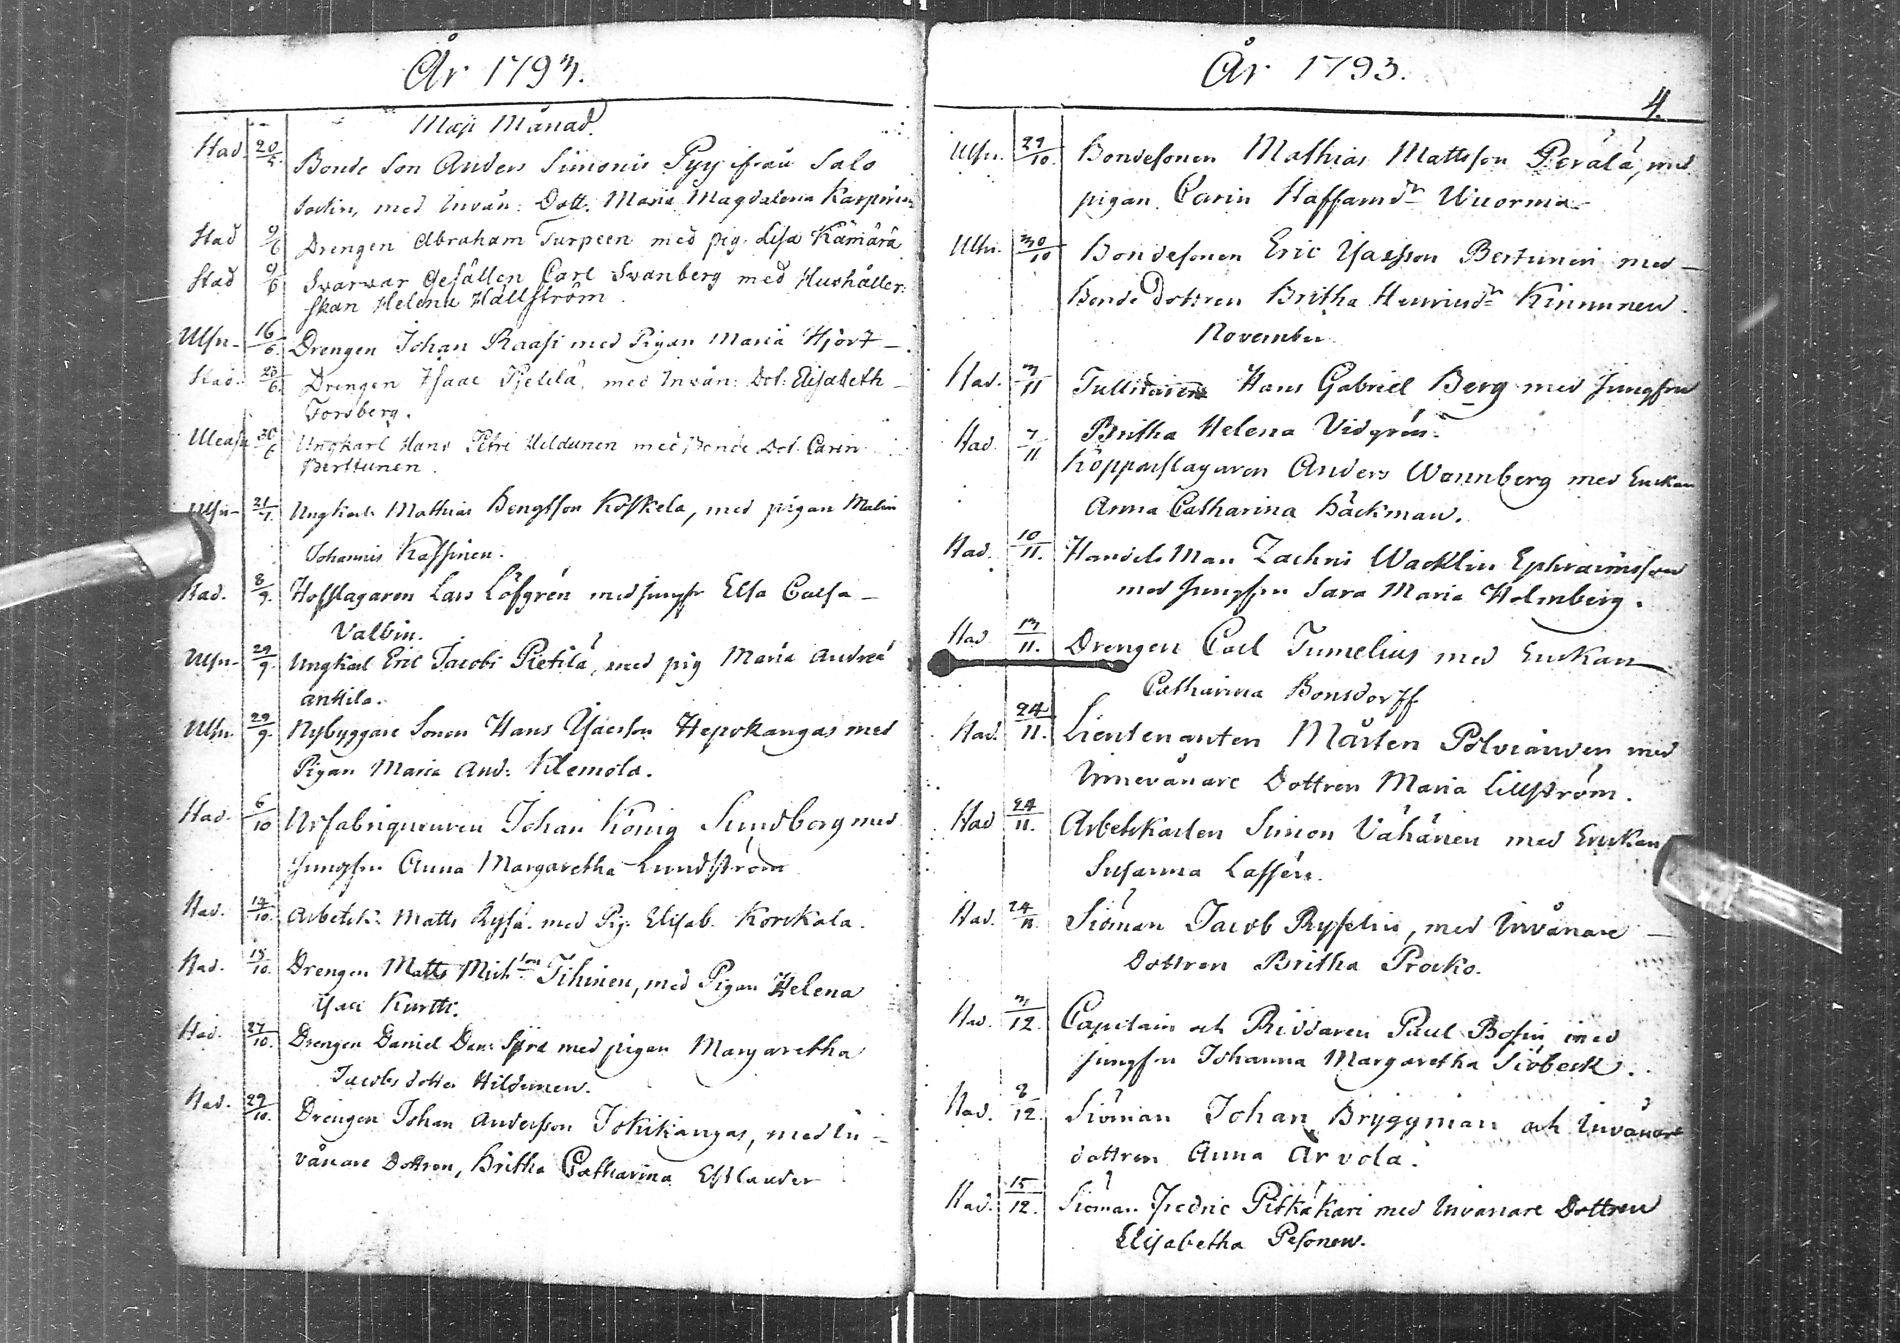 År 1793.
Maji Månad.
Stad 20/5 Bonde Son Anders Simonis Pyy ifrån Salo
Sockn, med Invån: Dott. Maria Magdalena Karpin
Stad 9/6 Drengen Abraham Turpeen med pig. Lisa Kämärä
Stad 9/6 Svarvar Gesällen Carl Svanberg med Hushåller-
skan Helena Hällström
Ulfu- 16/6 Drengen Johan Raasi med Pigan Maria Hjort -
Stad. 23/6 Drengen Isaac Pjetilä, med Invån: Dot: Elisabeth
Forsberg.
Uleåsu 30/6 Ungkarl Hans Petri Heldunen med Bonde Dot. Carin
Berttunen.
Ulsu- 21/7. Ungkarl Mathias Bengtsson Koskela, med pigan Malin
Johannis Kassinen.
Stad. 8/9. Hofslagaren Lars Löfgrén med jungfr Elsa Caisa -
Valbin.
Ulsu- 29/9 Ungkarl Eric Jacobi Pietilä, med pig Maria Andreä
Anttila.
Ulsu. 29/9. Nybyggare Sonen Hans Isacsson Hepokangas med
Pigan Maria And: Klemola.
Stad. 6/10 Urfabriqueuren Johan König Sundberg med
Jungfru Anna Margaretha Lundström
Stad. 14/10. Arbetsk: Matts Rysä. med Pig. Elisab. Korckala.
Stad. 15/10. Drengen Matts Mich:son Tihinen, med Pigan Helena
Isaci Kurtti.
Stad. 27/10. Drengen Daniel Dan: Syre med pigan Margaretha
Jacobs dotter Hildunen.
Stad. 29/10. Drengen Johan Andersson Jokikangas, med In-
vånare Dottren, Britha Catharina Estlander
År 1793.
4.
Ulsu. 27/10. Bondesonen Mathias Mattsson Perälä, med
pigan Carin Staffansdr Wuorma
Ulsu. 30/10 Bondesonen Eric Isacsson Bertunen med -
Bonde Dottren Britha Henricsdr Kinnunen.
November
Stad. 3/11 Tullskrivaren Hans Gabriel Berg med Jungfru
Britha Helena Vidgrén.
Stad. 7/11 Kopparslagaren Anders Wennberg med Enckan
Anna Catharina Bäckman.
Stad. 10/11. Handels Man Zachris Wacklin Ephraimsson
med Jungfru Sara Maria Holmberg.
Stad 13/11. Drengen Carl Tumelius med Enckan
Catharina Bonsdorff
Stad. 24/11. Lieutenanten Mårten Polvianden med
Innevånare Dottren Maria Lillström.
Stad 24/11. Arbetskarlen Simon Vähänen med Enckan
Susanna Lassén.
Stad. 24/11. Siöman Jacob Rysselin, med Invånare -
Dottren Britha Procko.
Stad. 3/12. Capitain och Riddaren Paul Bosin med
jungfru Johanna Margaretha Siöbeck.
Stad. 8/12. Siöman Johan Bryggman och Invånare
dottren Anna Arvola.
Stad. 15/12. Siöman Fredric Pitkäkari med Invånare Dottren
Elisabetha Pesonen.